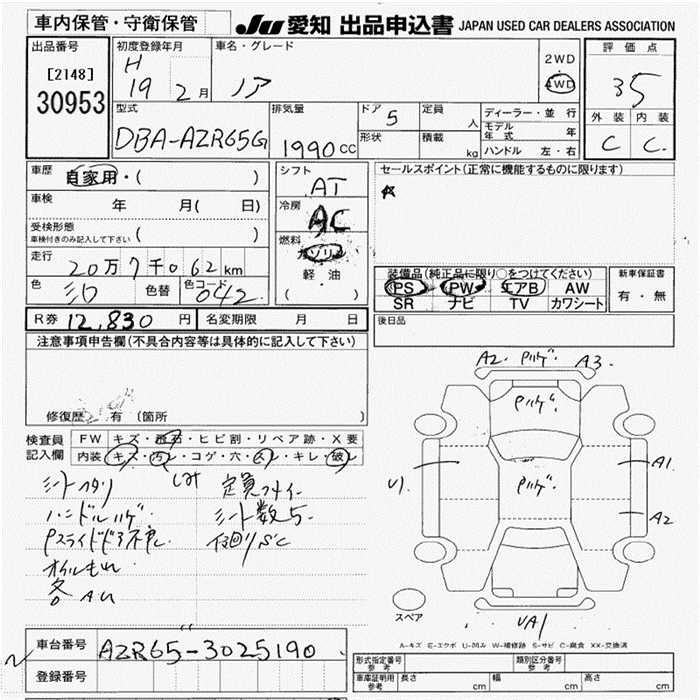 車内保管・守衛保管
JU 愛知 出品申込書 JAPAN USED CAR DEALERS ASSOCIATION
出品番号
[2148]
30953
初度登録年月
H
19 2月
車名・グレード
ノア
2WD
4WD
評価点
3.5
外装 内装
C C
型式
DBA-AZR65G
排気量
1990cc
ドア 5
形状
定員 人
積載 kg
ディーラー・並行
モデル年式 年
ハンドル 左・右
車歴
自家用・( )
車検 年 月( 日)
受検形態
車検付きのみ記入して下さい ( )
走行
20万7千062km
色 シロ 色替 色コード 042
シフト
AT
冷房
AC
燃料
ガソリン
軽・油
( )
セールスポイント(正常に機能するものに限ります)
装備品(純正品に限り○をつけてください)
PS PW エアB AW
SR ナビ TV カワシート
新車保証書
有・無
R券 12,830 円 名変期限 月 日
後日品
注意事項申告欄(不具合内容等は具体的に記入して下さい)
修復歴 有 (箇所 )
検査員記入欄
FW キズ・飛石・ヒビ割・リペア跡・X要
内装 キズ・汚レ・コゲ・穴・スレ・キレ・破レ
シートヘタリ
ハンドルハゲ
Pスライドドア不良
オイルもれ
各AU
シート数5
下回りSC
A2 Pハゲ A3
Pハゲ
Pハゲ
U1
A1
A2
UA1
スペア
A-キズ E-エクボ U-凹み W-補修跡 S-サビ C-腐食 XX-交換済
車台番号 AZR65-3025190
登録番号
形式指定番号 参考
類別区分番号 参考
車庫証明用 参考 長さ cm 幅 cm 高さ cm